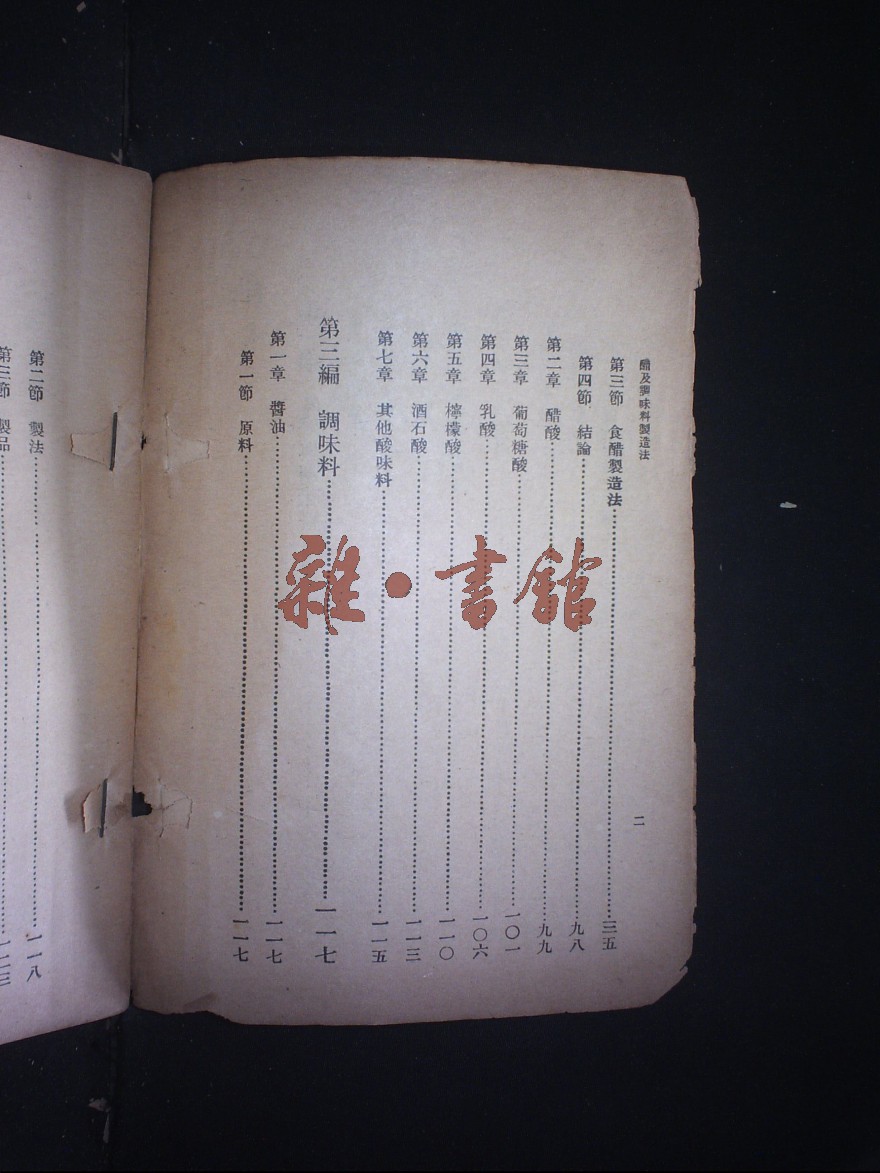 醋及調味料製造法
二
第三節 食醋製造法 三五
第四節 結論 九八
第二章 醋酸 九九
第三章 葡萄糖酸 一〇一
第四章 乳酸 一〇六
第五章 檸檬酸 一一〇
第六章 酒石酸 一一三
第七章 其他酸味料 一一五
第三編 調味料 一一七
第一章 醬油 一一七
第一節 原料 一一七
第二節 製法 一一八
第三節 製品
雜·書館